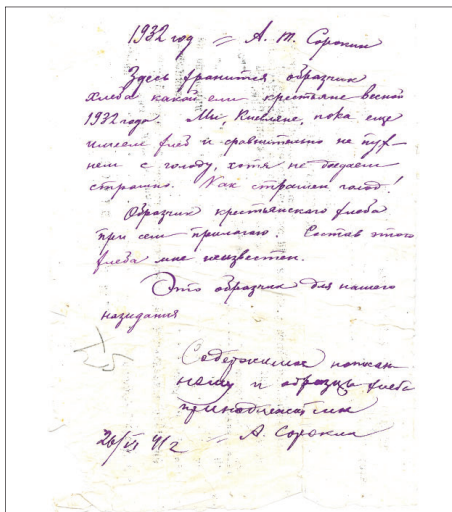 1932 год = А. М. Сорокин
Здесь хранится образчик
хлеба какой ели крестьяне весной
1932 года. Мы, Киевляне, пока еще
имеем хлеб и сравнительно не пух-
нем с голоду, хотя не доедаем
страшно. Как страшен голод!
Образчик крестьянского хлеба
при сем прилагаю. Состав этого
хлеба мне неизвестен.
Это образчик для нашего
назидания
Содержимое написан-
ному и образцы хлеба
принадлежат
= А. Сорокин